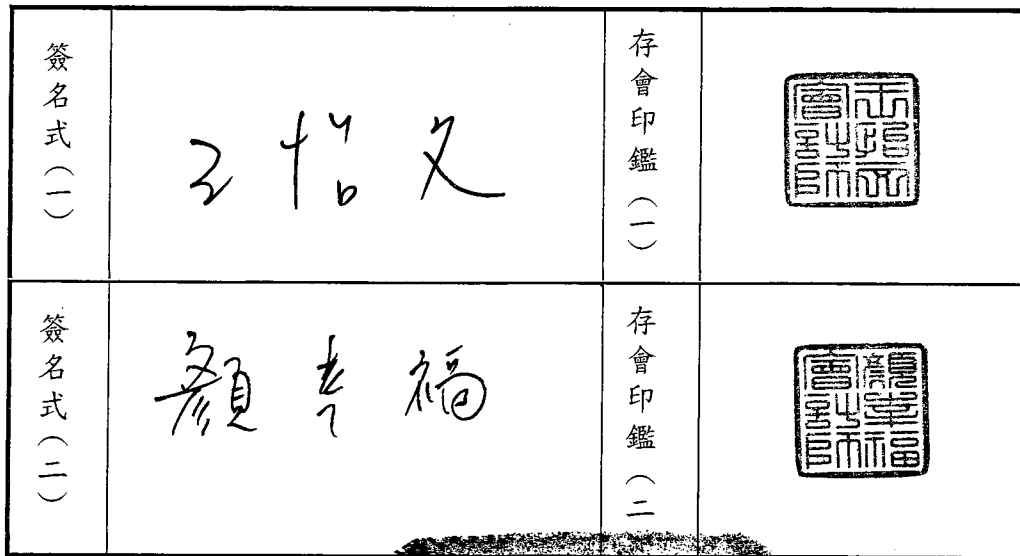 簽名式(一)
王怡文
存會印鑑(一)
王怡文會計師
簽名式(二)
顏幸福
存會印鑑(二
顏幸福會計師